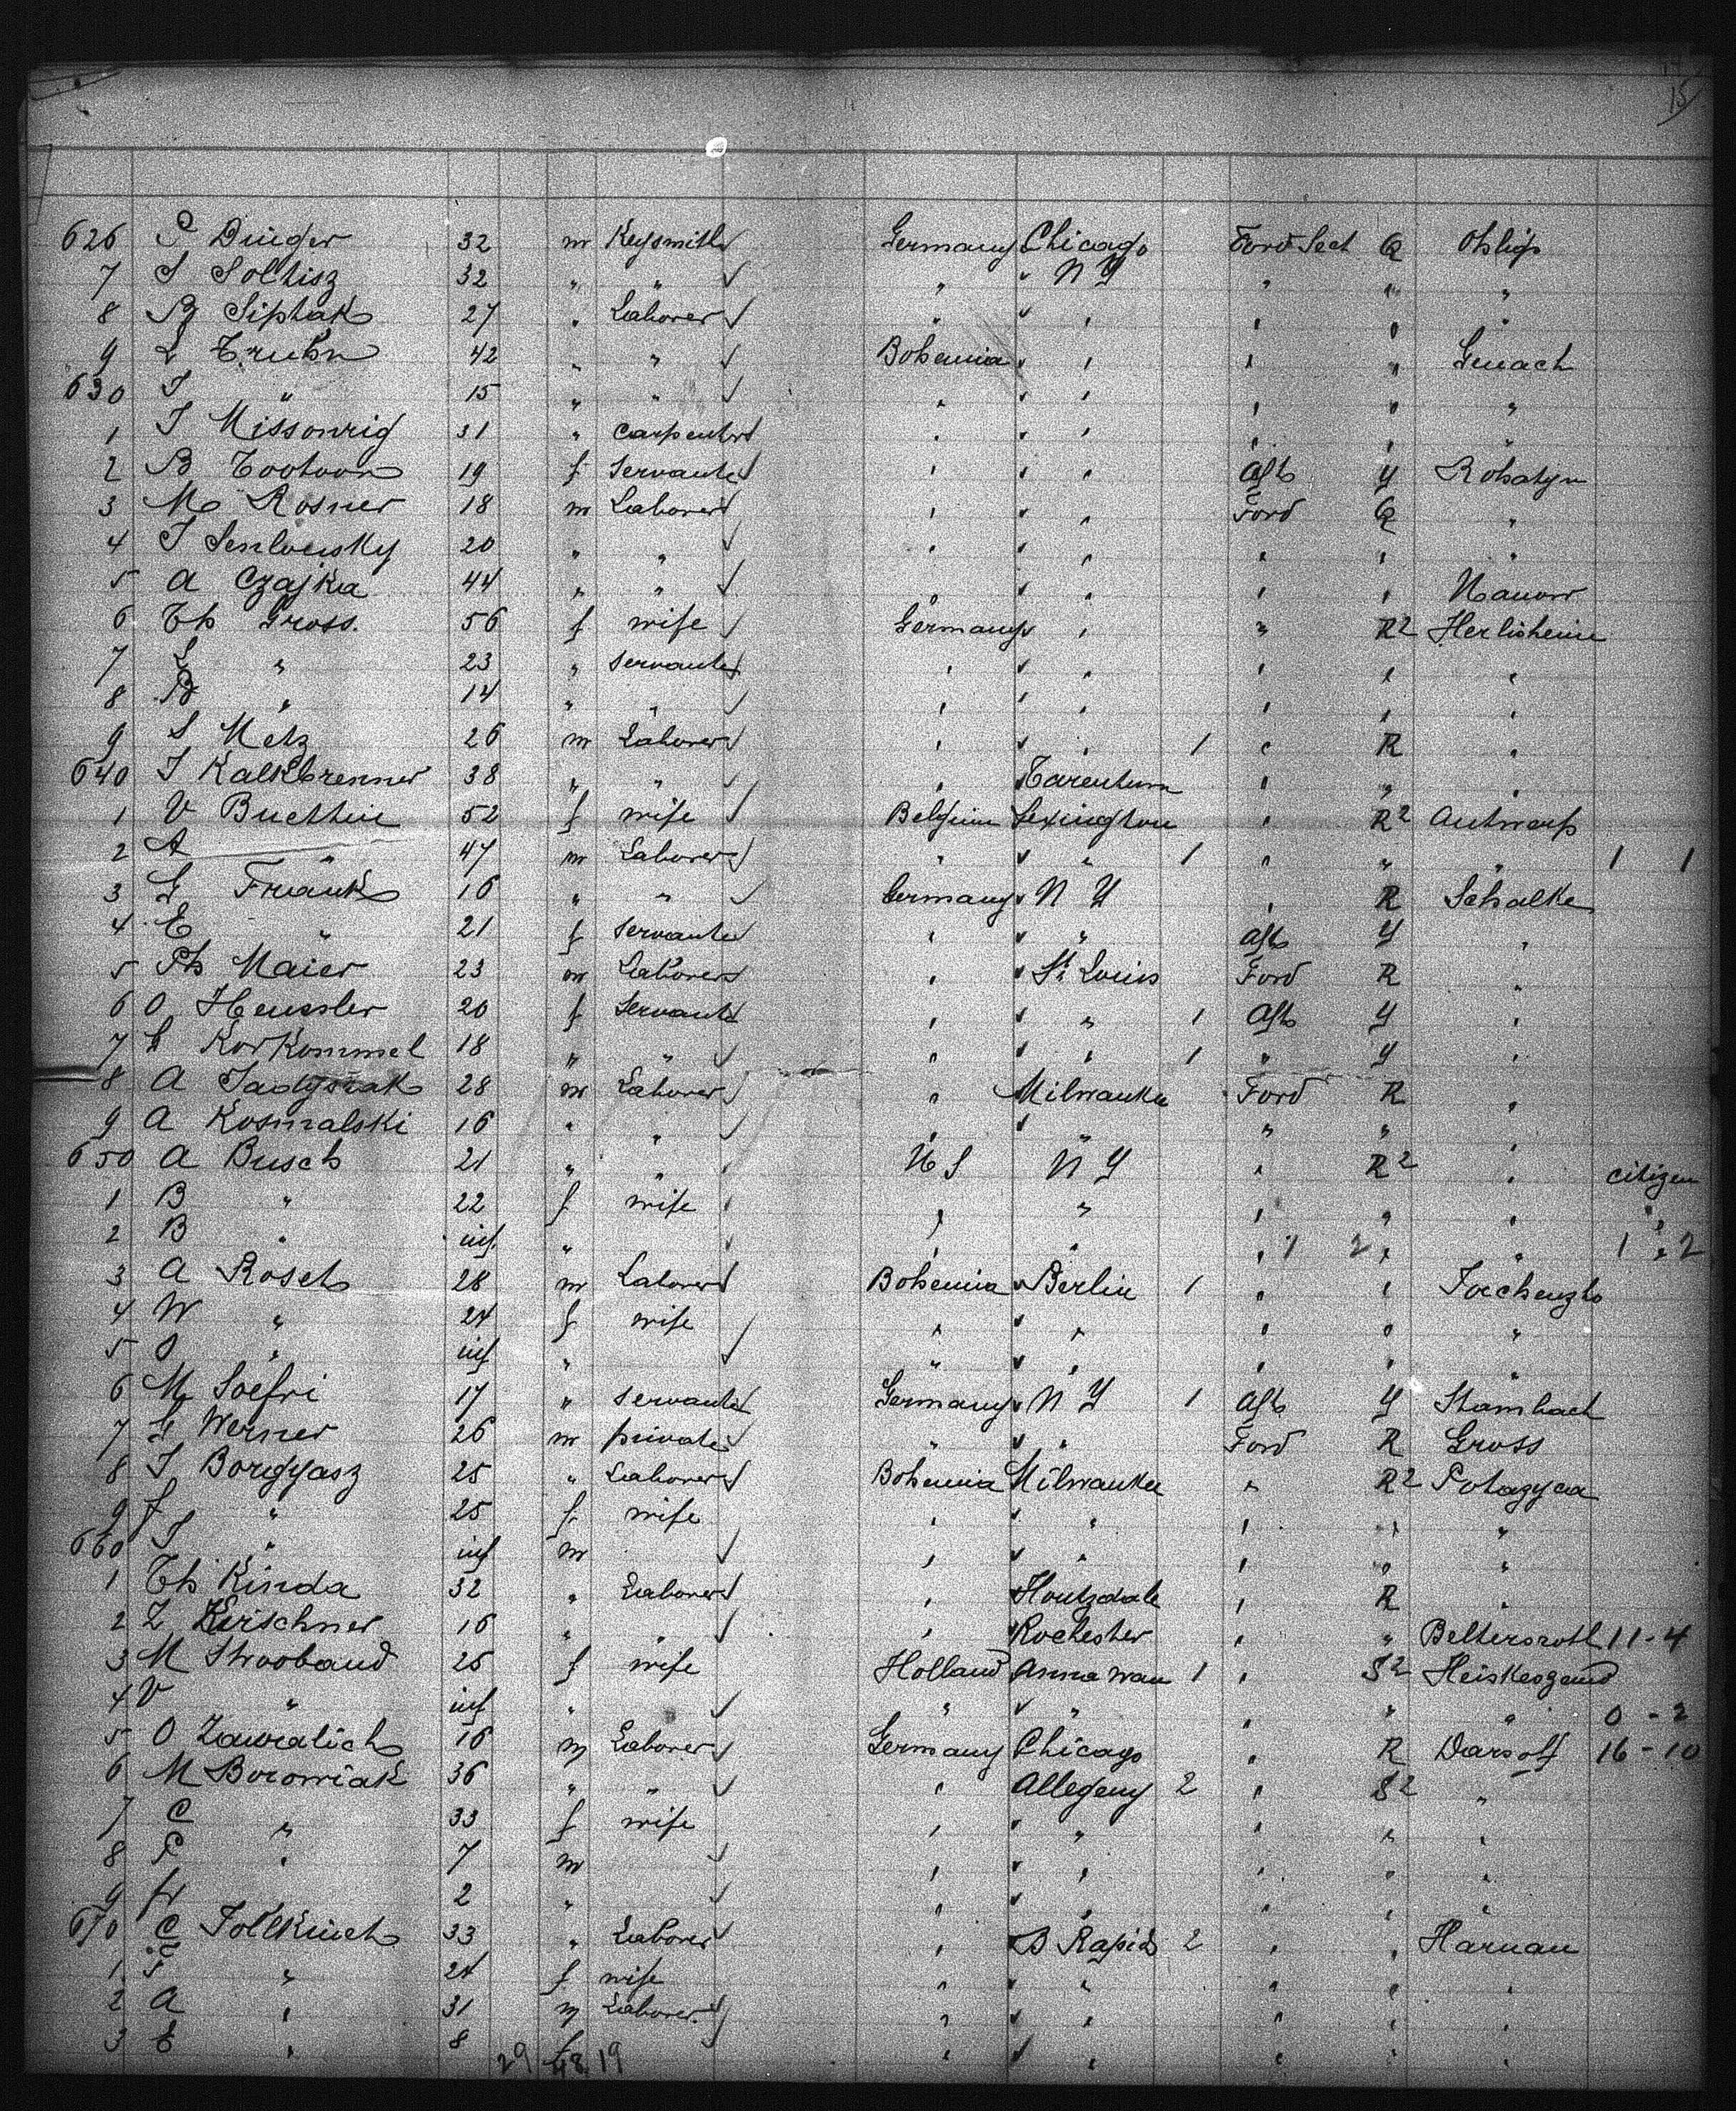 15
626 P Dinger 32 m Keysmith Germany Chicago Ford Sect Q Oslip
7 S Soltisz 32 " " " N Y " " "
8 Siptak 27 " Laborer " " " " "
9 L 42 " " Bohemia " " "
630 J " 15 " " " " " " "
1 J Missonrig 31 " Carpenter " " " " "
2 B 19 f Servante " " Aft Y Rohatyn
3 M Rosner 18 m Laborer " " Ford Q "
4 J 20 " " " " " " "
5 A Czajka 44 " " " " " "
6 Th Gross. 56 f wife Germany " " R2 Herlisheim
7 L " 23 " Servante " " " " "
8 B " 14 " " " " " " "
9 S Metz 26 m Laborer " " 1 " R "
640 J Kalkbrenner 38 " " " Tarentum " " "
1 V 52 f wife Belgium Lexington " R2 Antwerp
2 A " 47 m Laborer " " 1 " " " 1 1
3 G Frank 16 " " Germany N Y " R Schalke
4 E " 21 f Servante " " Aft Y "
5 Ph Maier 23 m Laborer " St Louis Ford R "
6 O Heussler 20 f Servante " " 1 Aft Y "
7 Korkommel 18 " " " " 1 " Y "
8 A 28 m Laborer " Milwaukee Ford R "
9 A Kosmalski 16 " " " " " " "
650 A Busch 21 " " U S N Y " R2 " citizen
1 B " 22 f wife " " " " " "
2 B " inf. " " " " 1 2 " " 1 " 2
3 A Rosch 28 m Laborer Bohemia Berlin 1 " "
4 W " 24 f wife " " " " "
5 O " inf " " " " " "
6 M Soefri 17 " servante Germany N Y 1 Aft Y Stambach
7 G Werner 26 m private " " Ford R Gross
8 J 25 " Laborer Bohemia Milwaukee " R2
9 J " 25 f wife " " " " "
660 J " inf m " " " " "
1 Th Kinda 32 " Laborer " Houtzdale " R "
2 Z Kirschner 16 " " " Rochester " " Beltersrotl 11-4
3 M Stroobaud 25 f wife Holland Annawan 1 " S2
4 V " inf " " " " " " 0 - 2
5 O Zawralich 16 m Laborer Germany Chicago " R 16 - 10
6 M Borowiak 36 " " " Allegeny 2 " S2 "
7 C " 33 f wife " " " " "
8 P " 7 m " " " " "
9 Fr 2 " " " " " "
670 C 33 " Laborer " B Rapids 2 " " Harnau
1 F " 24 f wife " " " " "
2 A " 31 m Laborer " " " " "
3 E " 8 f " " " " "
29 48 19